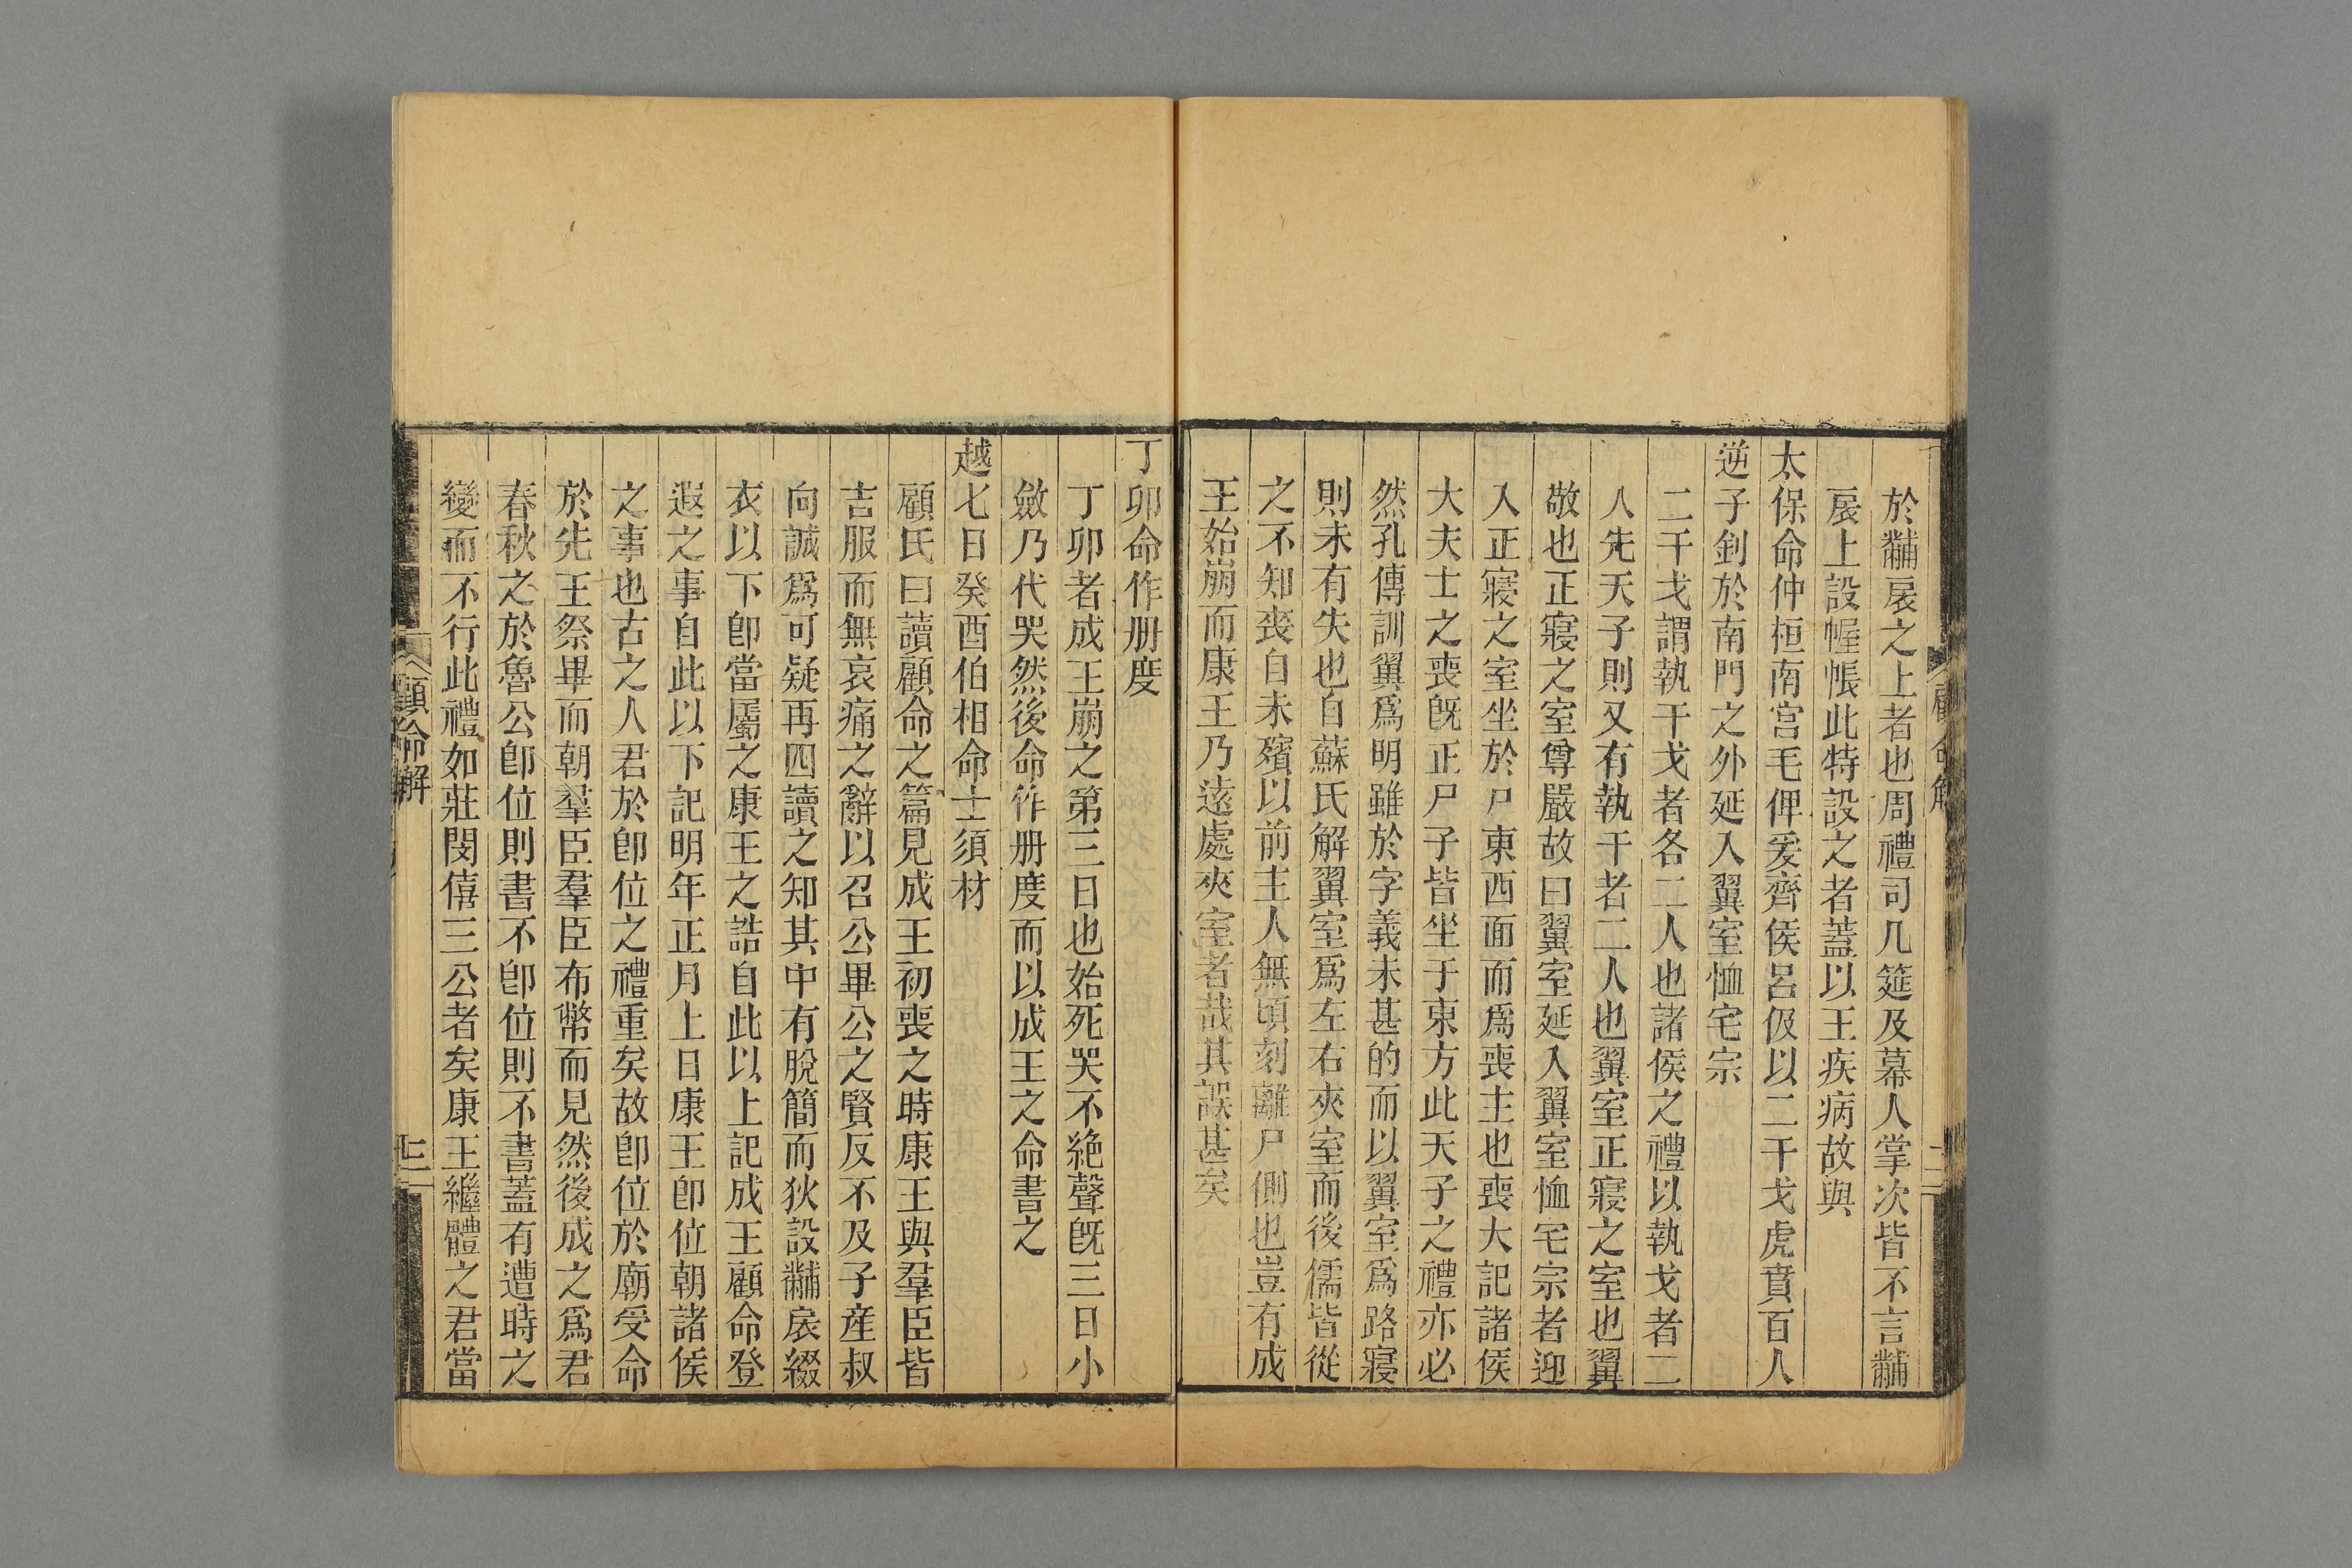 於黼扆之上者也周禮司几筵及幕人掌次皆不言黼
扆上設幄帳此特設之者蓋以王疾病故與
太保命仲桓南宮毛俾爰齊侯呂伋以二干戈虎賁百人
逆子釗於南門之外延入翼室恤宅宗
二干戈謂執干戈者各二人也諸侯之禮以執戈者二
人先天子則又有執干者二人也翼室正寢之室也翼
敬也正寢之室尊嚴故曰翼室延入翼室恤宅宗者迎
入正寢之室坐於尸東西面而爲喪主也喪大記諸侯
大夫士之喪旣正尸子皆坐于東方此天子之禮亦必
然孔傳訓翼爲明雖於字義未甚的而以翼室爲路寢
則未有失也自蘇氏解翼室爲左右夾室而後儒皆從
之不知喪自未殯以前主人無頃刻離尸側也豈有成
王始崩而康王乃遠處夾室者哉其誤甚矣
丁卯命作册度
丁卯者成王崩之第三日也始死哭不絶聲旣三日小
斂乃代哭然後命作册度而以成王之命書之
越七日癸酉伯相命士須材
顧氏曰讀顧命之篇見成王初喪之時康王與羣臣皆
吉服而無哀痛之辭以召公畢公之賢反不及子産叔
向誠爲可疑再四讀之知其中有脫簡而狄設黼扆綴
衣以下卽當屬之康王之誥自此以上記成王顧命登
遐之事自此以下記明年正月上日康王卽位朝諸侯
之事也古之人君於卽位之禮重矣故卽位於廟受命
於先王祭畢而朝羣臣羣臣布幣而見然後成之爲君
春秋之於魯公卽位則書不卽位則不書蓋有遭時之
變而不行此禮如莊閔僖三公者矣康王繼體之君當
顧命解